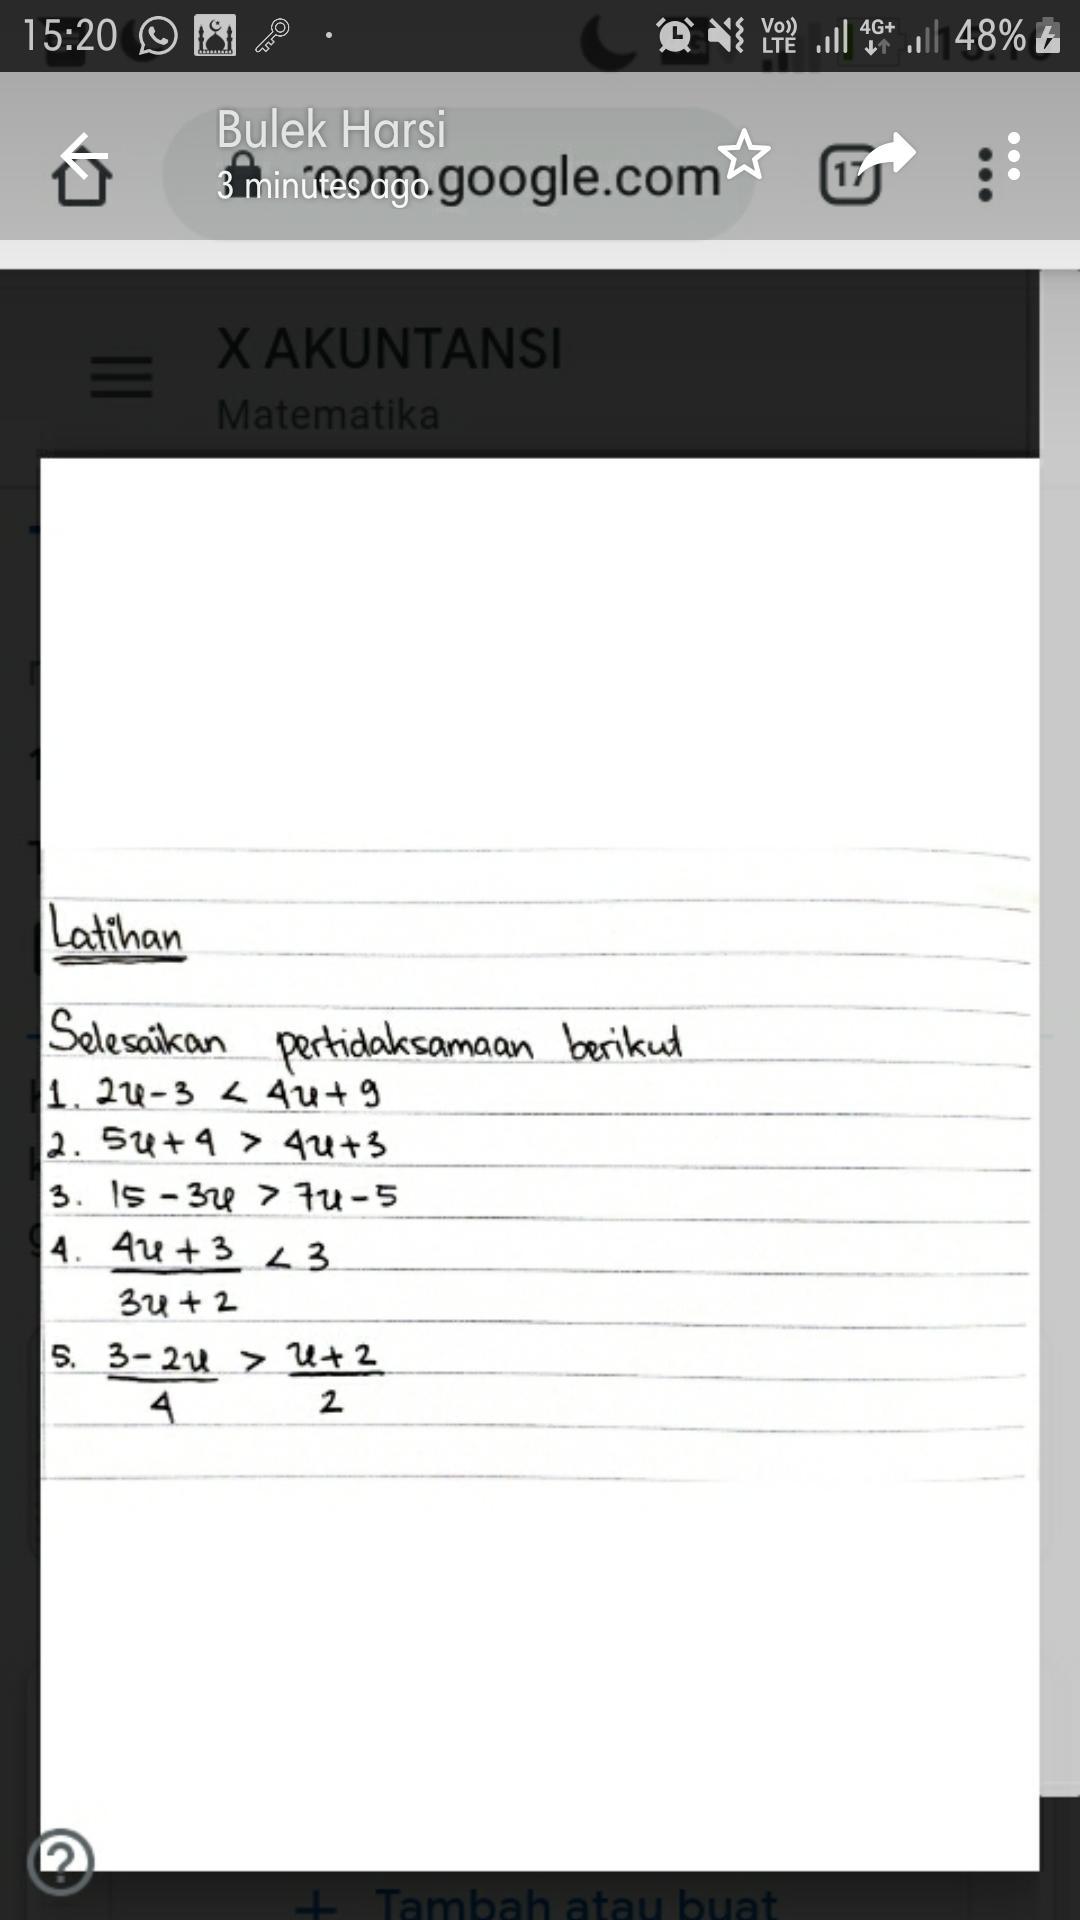 15:20
Vo)) LTE
4G+
48%
Bulek Harsi
3 minutes ago
room.google.com
17
X AKUNTANSI
Matematika
Latihan
Selesaikan pertidaksamaan berikut
1. 2x - 3 < 4x + 9
2. 5x + 4 > 4x + 3
3. 15 - 3x > 7x - 5
4. 4x + 3 < 3
3x + 2
5. 3 - 2x > x + 2
4 2
?
+ Tambah atau buat